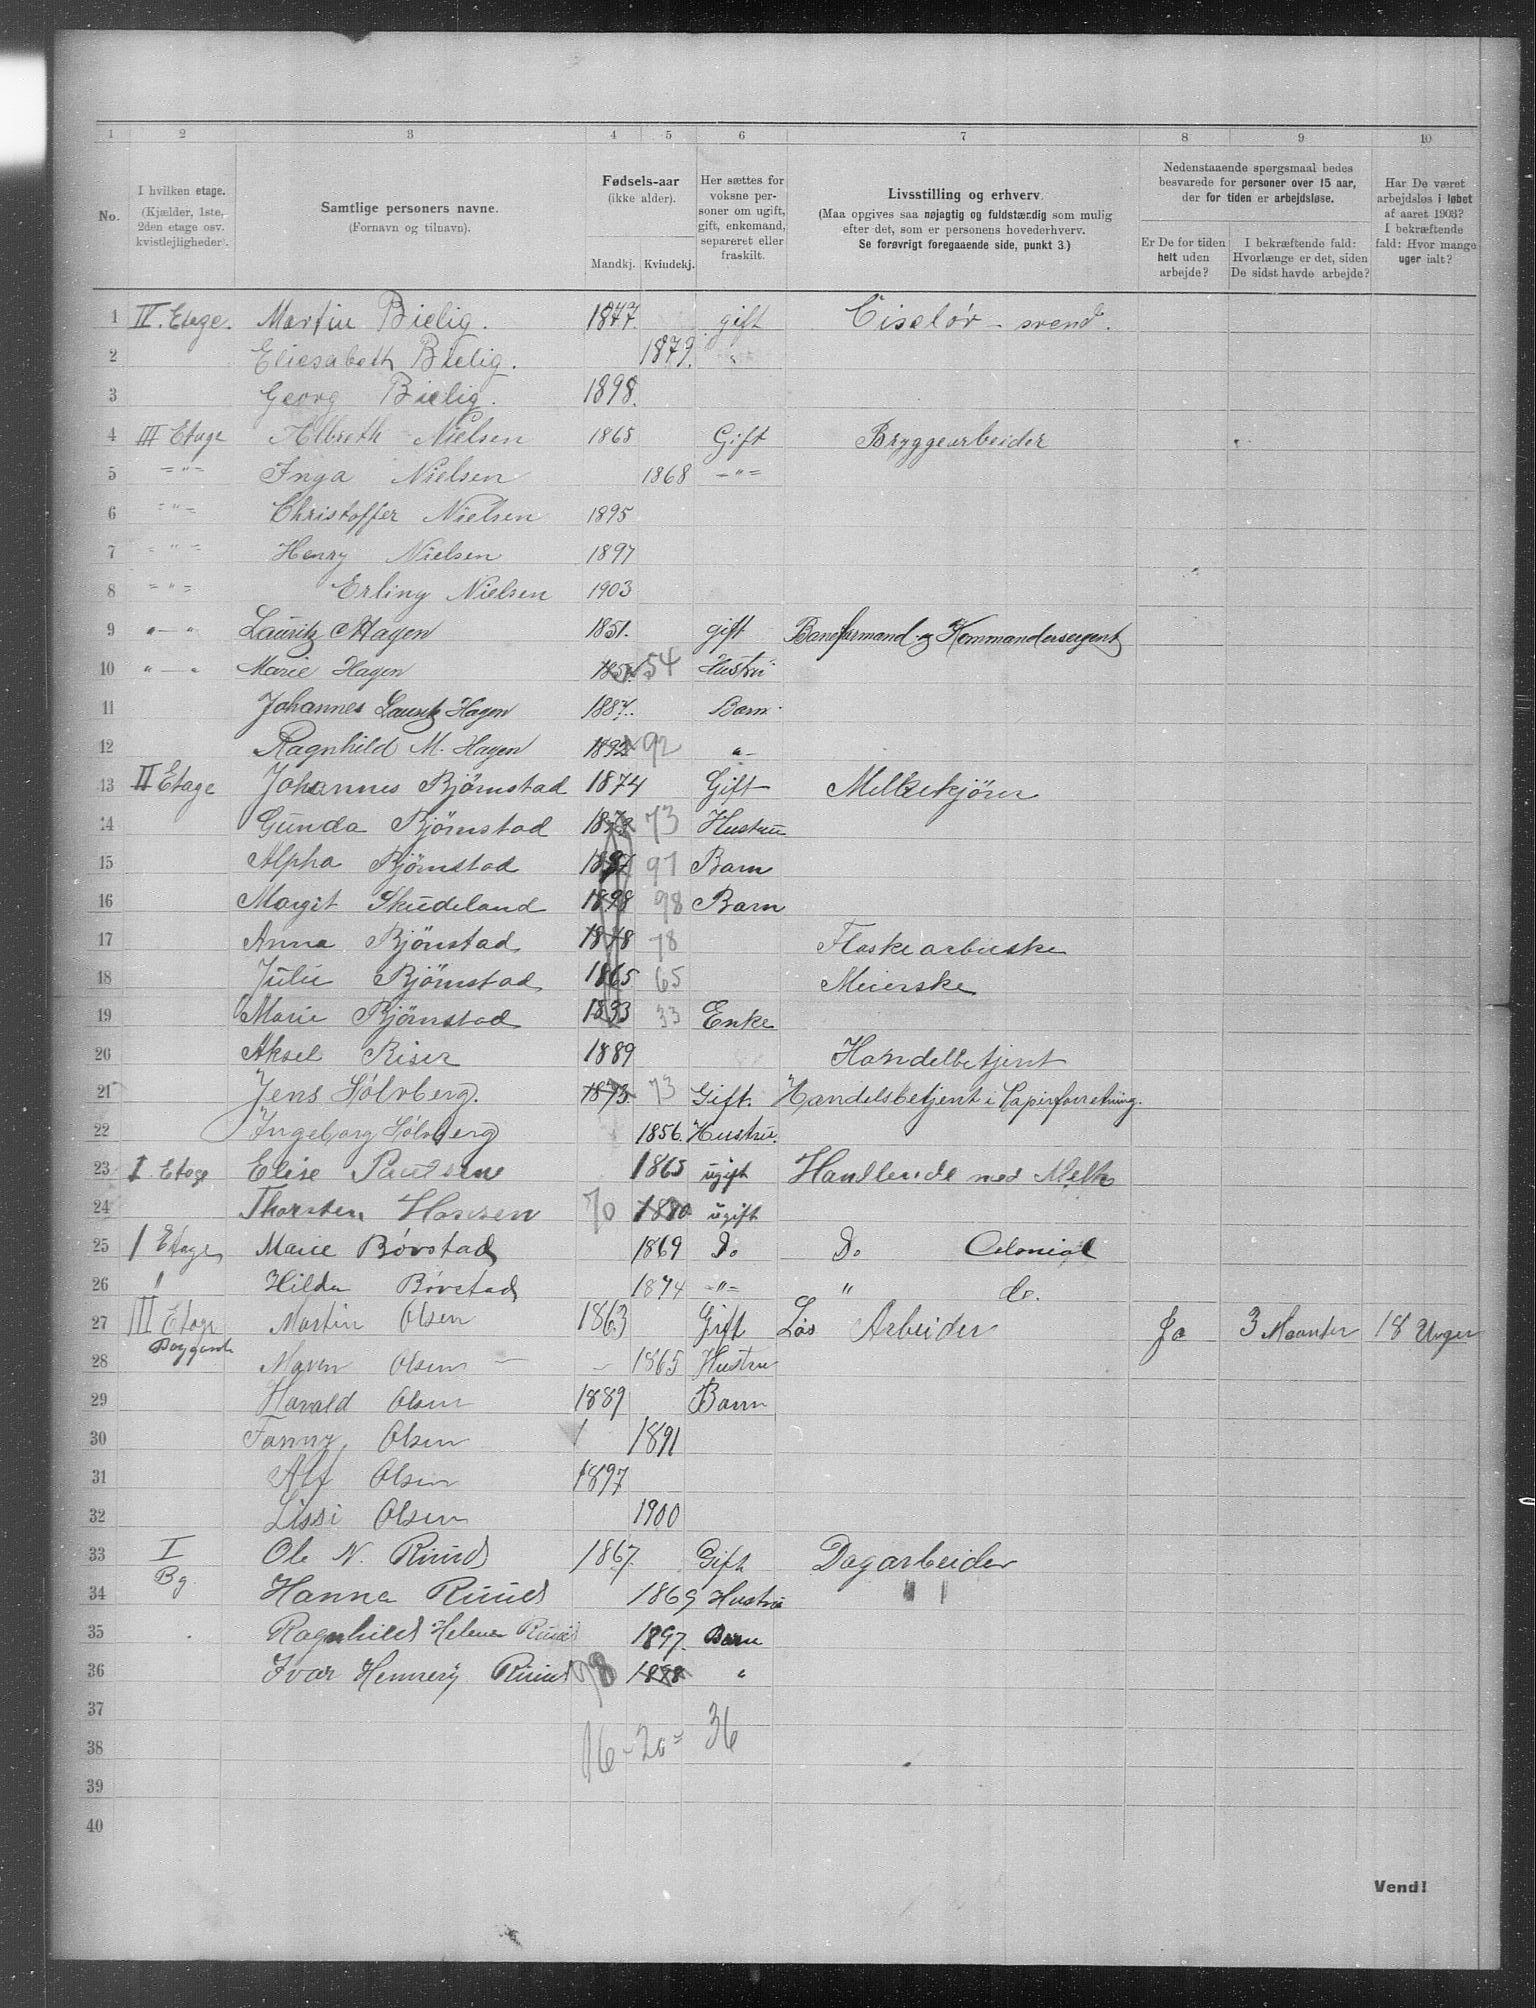 1 2 3 4 5 6 7 8 9 10
No.
I hvilken etage.
(Kjælder, 1ste,
2den etage osv.
kvistlejligheder).
Samtlige personers navne.
(Fornavn og tilnavn).
Fødsels-aar
(ikke alder).
Mandkj. Kvindekj.
Her sættes for
voksne per-
soner om ugift,
gift, enkemand,
separeret eller
fraskilt.
Livsstilling og erhverv.
(Maa opgives saa nøjagtig og fuldstændig som mulig
efter det, som er personens hovederhverv.
Se forøvrigt foregaaende side, punkt 3.)
Nedenstaaende spørgsmaal bedes
besvarede for personer over 15 aar,
der for tiden er arbejdsløse.
Er De for tiden
helt uden
arbejde?
I bekræftende fald:
Hvorlænge er det, siden
De sidst havde arbejde?
Har De været
arbejdsløs i løbet
af aaret 1903?
I bekræftende
fald: Hvor mange
uger ialt?
1 IV. Etage. Martin Bielig. 1877. gift Ciselør - svend.
2 Eliesabeth Bielig. 1879. "
3 Georg Bielig. 1898.
4 III Etage Albreth Nielsen 1865 Gift Bryggearbeider
5 =„= Inga Nielsen 1868 -„=
6 =„= Christoffer Nielsen 1895
7 =„= Henry Nielsen 1897
8 =„= Erling Nielsen 1903
9 „—„ Lauritz Hagen 1851. gift Baneformand og Kommandersergent
10 „—„ Marie Hagen 54 Hustru
11 Johannes Lauritz Hagen 1887. Barn
12 Ragnhild M. Hagen 1892 92 „-
13 II Etage Johannes Bjørnstad 1874 Gift Melkekjører
14 Gunda Bjørnstad 1873 73 Hustru
15 Alpha Bjørnstad 1897 97 Barn
16 Margit Skudeland 1898 98 Barn
17 Anna Bjønstad 1878 78 Flaskearbuske
18 Julie Bjørnstad 1865 65 Meierske
19 Marie Bjørnstad 1833 33 Enke
20 Aksel Riser 1889 Handelbetjent
21 Jens Sølvberg. 1873. 73 Gift. Handelsbetjent i Papirforretning.
22 Ingeborg Sølvberg 1856. Hustru.
23 I. Etage Elise Paulsen 1865 ugift Handlende med Melk
24 Thorsten Hansen 70 1880 ugift
25 I Etage Marie Børstad 1869 Do Do Colonial
26 " Hilda Børstad 1874 -„= " do.
27 III Etage Martin Olsen 1863 Gift Løs Arbeider Ja 3 Maanter 18 Uger
Baygaard
28 Maren Olsen — – 1865 Hustru
29 Harald Olsen 1889 Barn
30 Fanny Olsen 1891
31 Alf Olsen 1897
32 Lissi Olsen 1900
33 I Ole N. Ruud 1867. Gift Dagarbeider
Bg.
34 Hanna Ruud 1869 Hustru
35 Ragnhild Helene Ruud 1897. Barn
36 Ivar Hennery Ruud 98 1898 "
37
16 - 20 = 36
38
39
40
Vend!